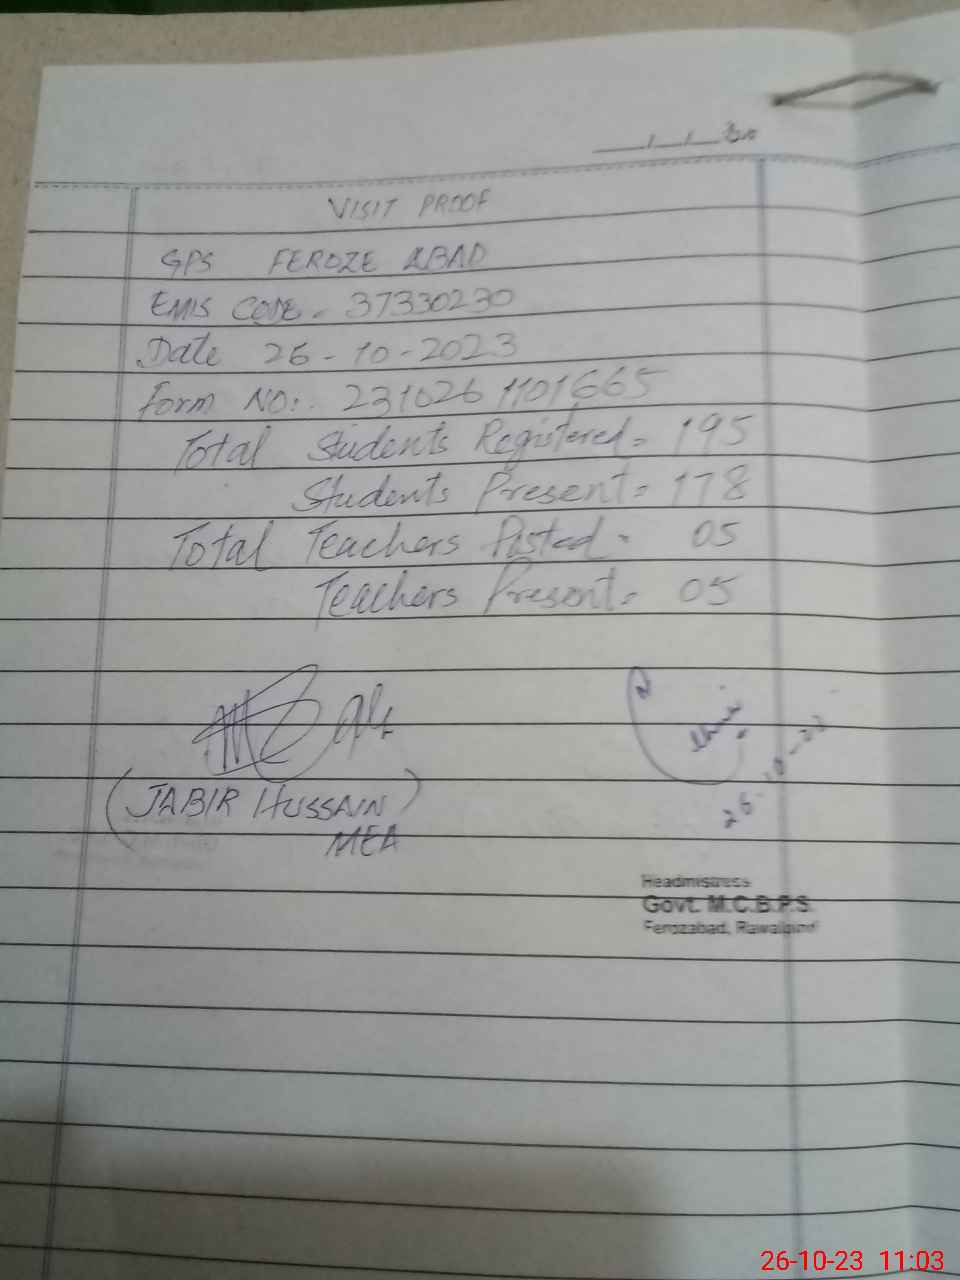 VISIT PROOF
GPS FEROZE ABAD
EMIS CODE - 37330230
Date 26-10-2023
Form NO:. 231026 1101665
Total Students Registered = 195
Students Present = 178
Total Teachers Posted = 05
Teachers Present = 05
(JABIR HUSSAIN)
MEA
Headmistress
Govt. M.C.B.P.S.
Ferozabad, Rawalpindi
26-10-23 11:03